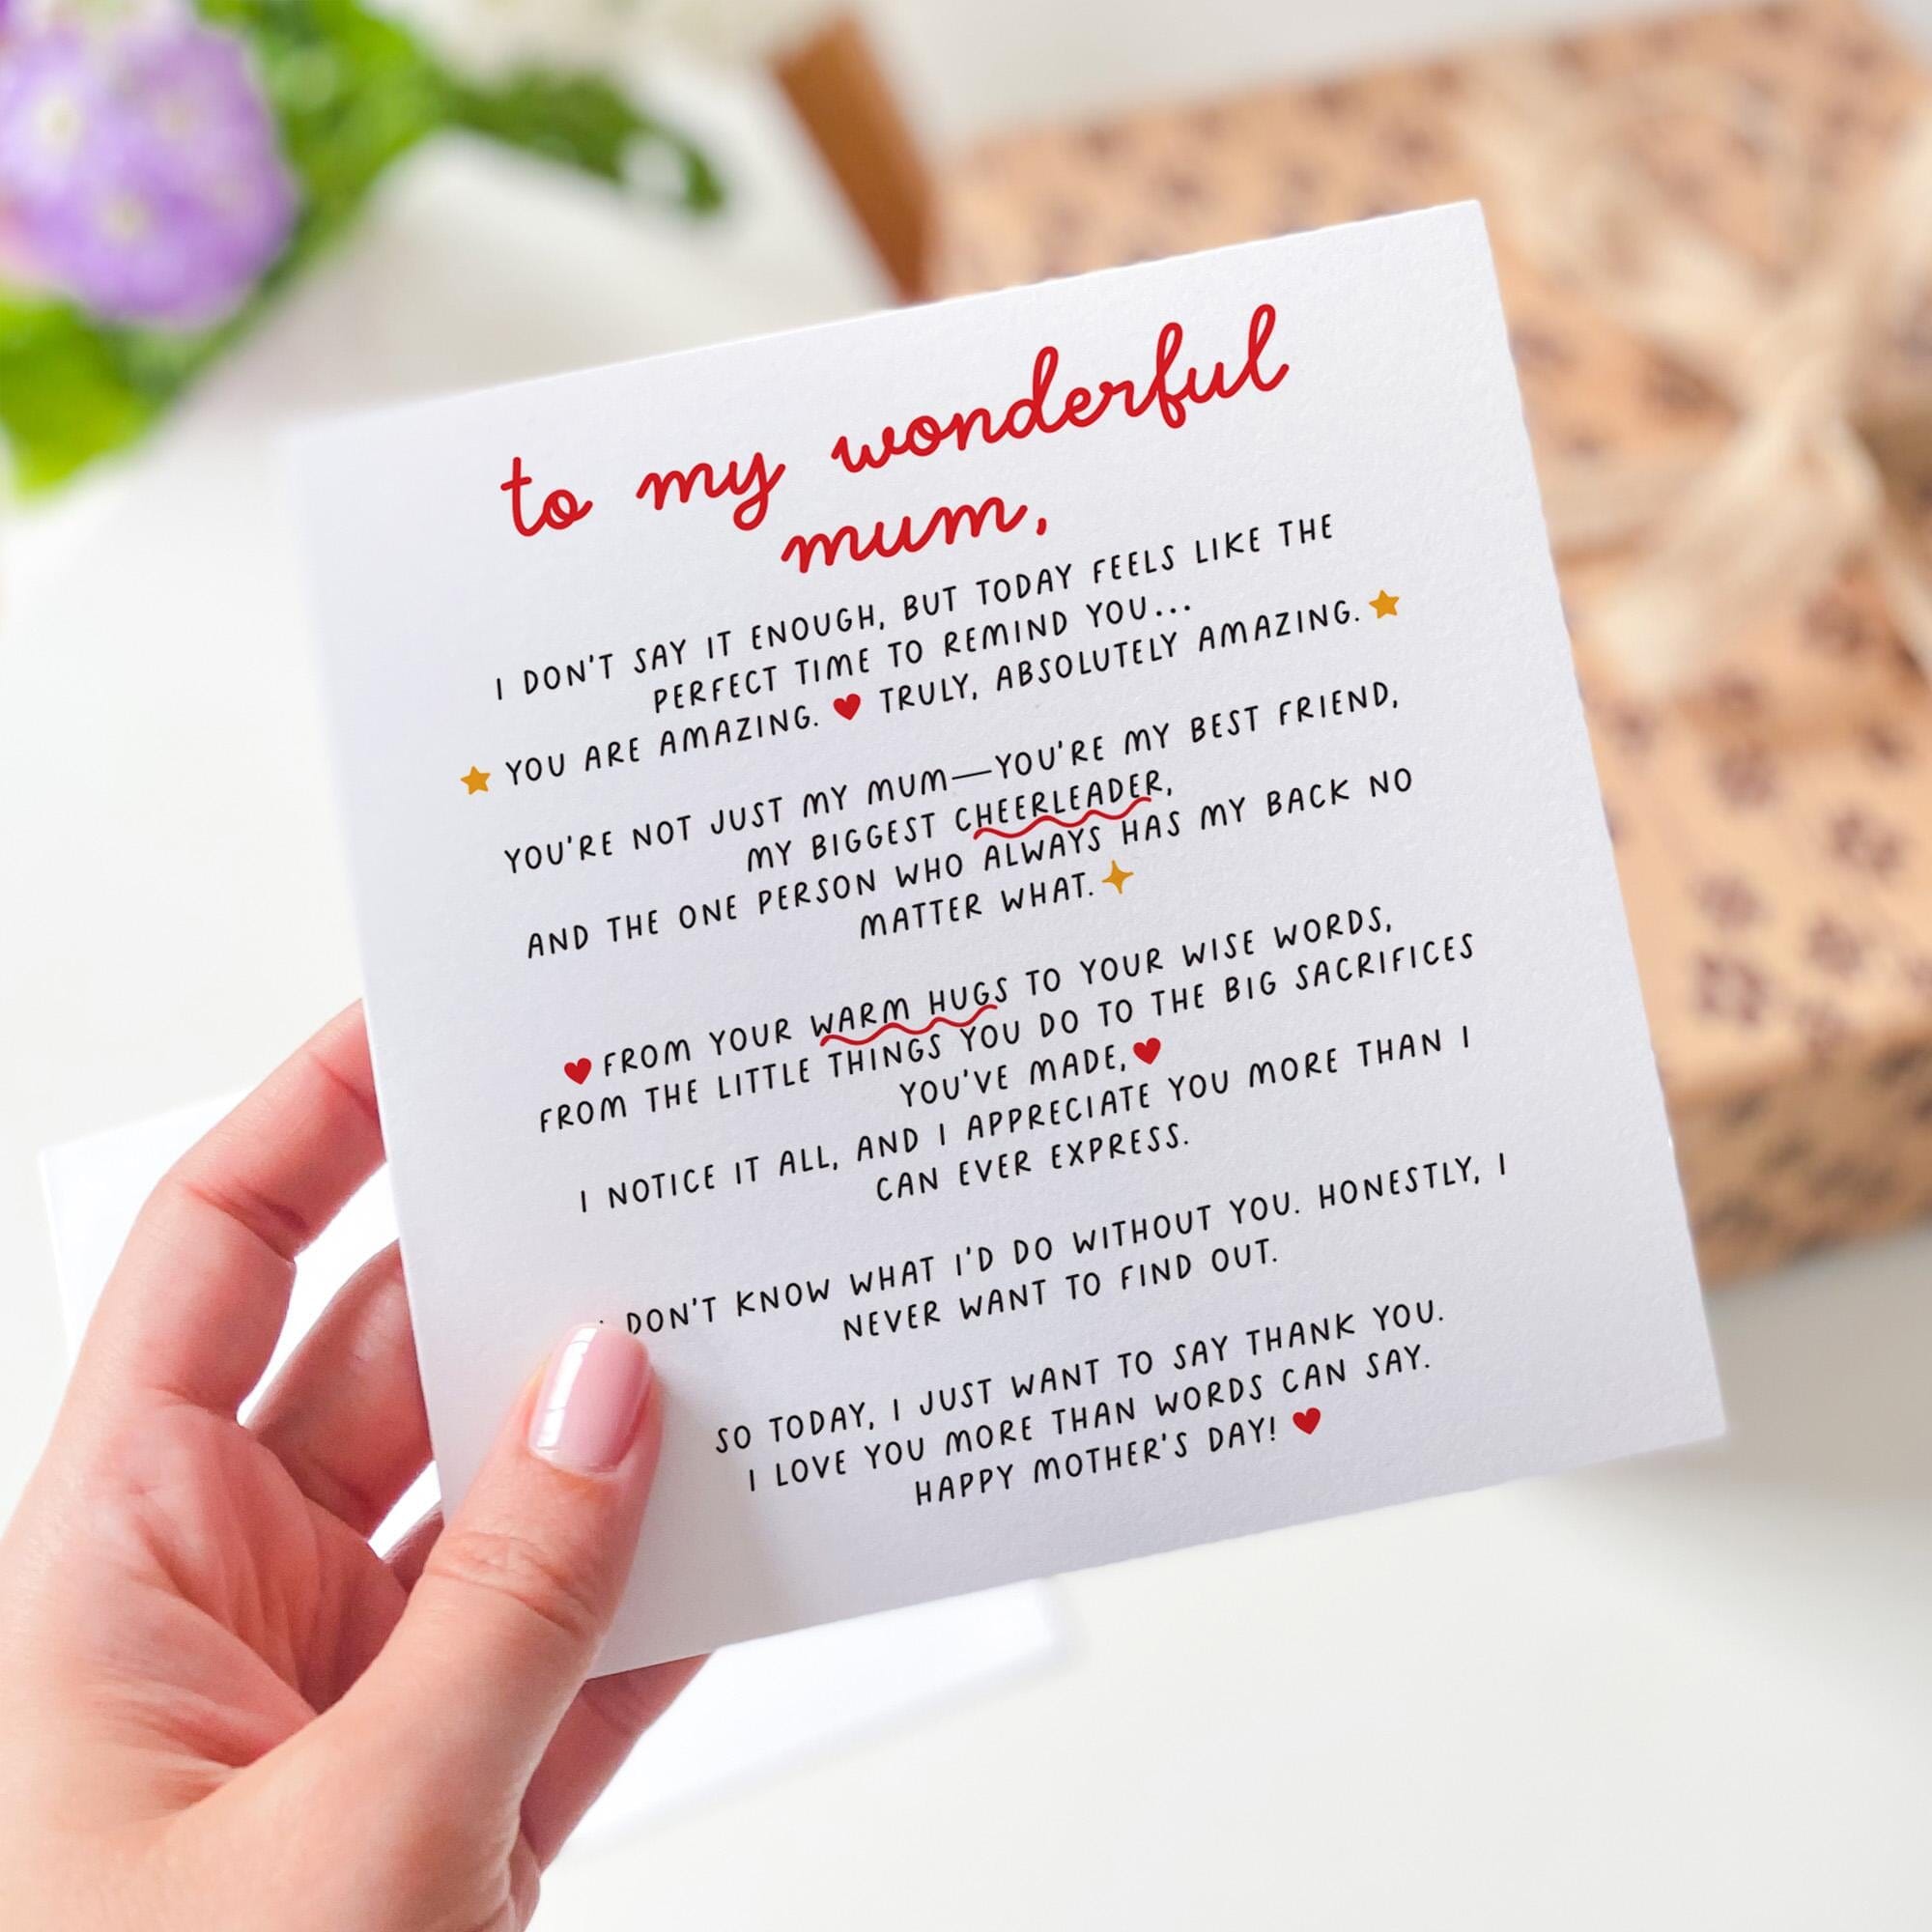 to my wonderful
mum,
I DON'T SAY IT ENOUGH, BUT TODAY FEELS LIKE THE
PERFECT TIME TO REMIND YOU...
YOU ARE AMAZING. ❤ TRULY, ABSOLUTELY AMAZING.
YOU'RE NOT JUST MY MUM—YOU'RE MY BEST FRIEND,
MY BIGGEST CHEERLEADER,
AND THE ONE PERSON WHO ALWAYS HAS MY BACK NO
MATTER WHAT.
FROM YOUR WARM HUGS TO YOUR WISE WORDS,
FROM THE LITTLE THINGS YOU DO TO THE BIG SACRIFICES
YOU'VE MADE,
I NOTICE IT ALL, AND I APPRECIATE YOU MORE THAN I
CAN EVER EXPRESS.
DON'T KNOW WHAT I'D DO WITHOUT YOU. HONESTLY, I
NEVER WANT TO FIND OUT.
SO TODAY, I JUST WANT TO SAY THANK YOU.
I LOVE YOU MORE THAN WORDS CAN SAY.
HAPPY MOTHER'S DAY!